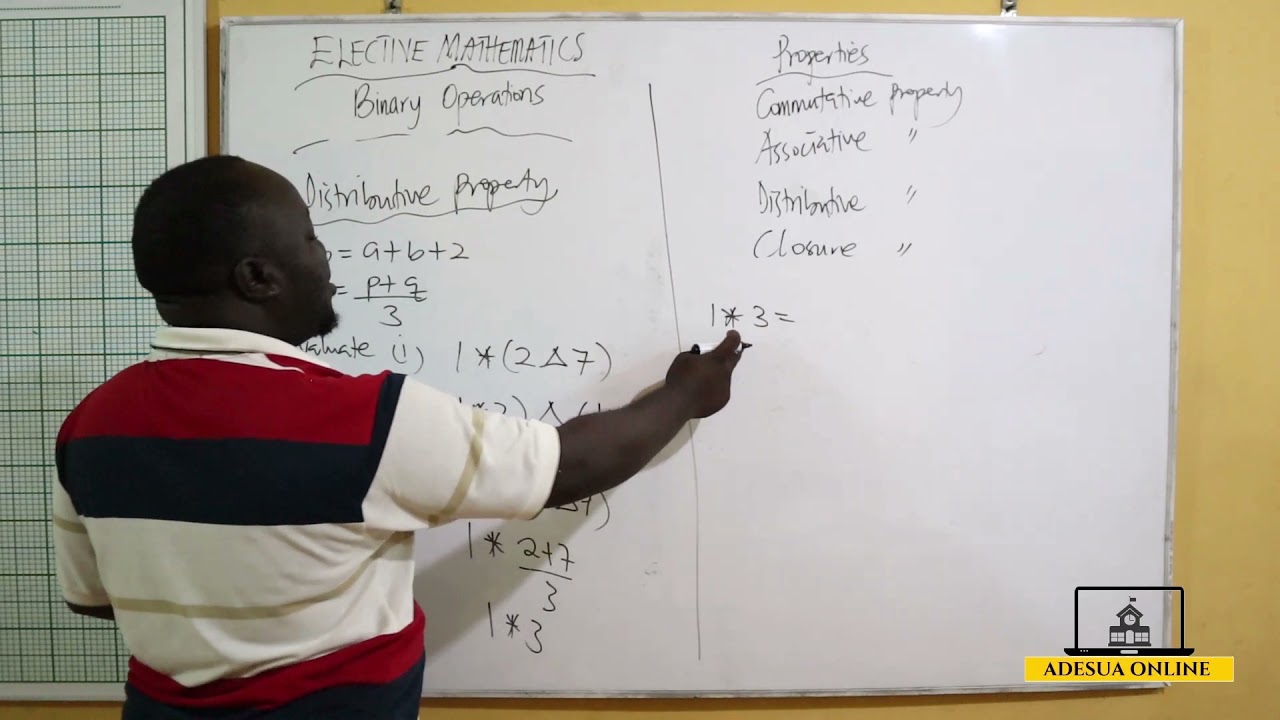 ELECTIVE MATHEMATICS
Binary Operations
Distributive Property
= a+b+2
= p+q
3
(i) 1*(2Δ7)
Δ
Δ7)
1* 2+7
3
1*3
Properties
Commutative Property
Associative "
Distributive "
Closure "
1*3=
ADESUA ONLINE